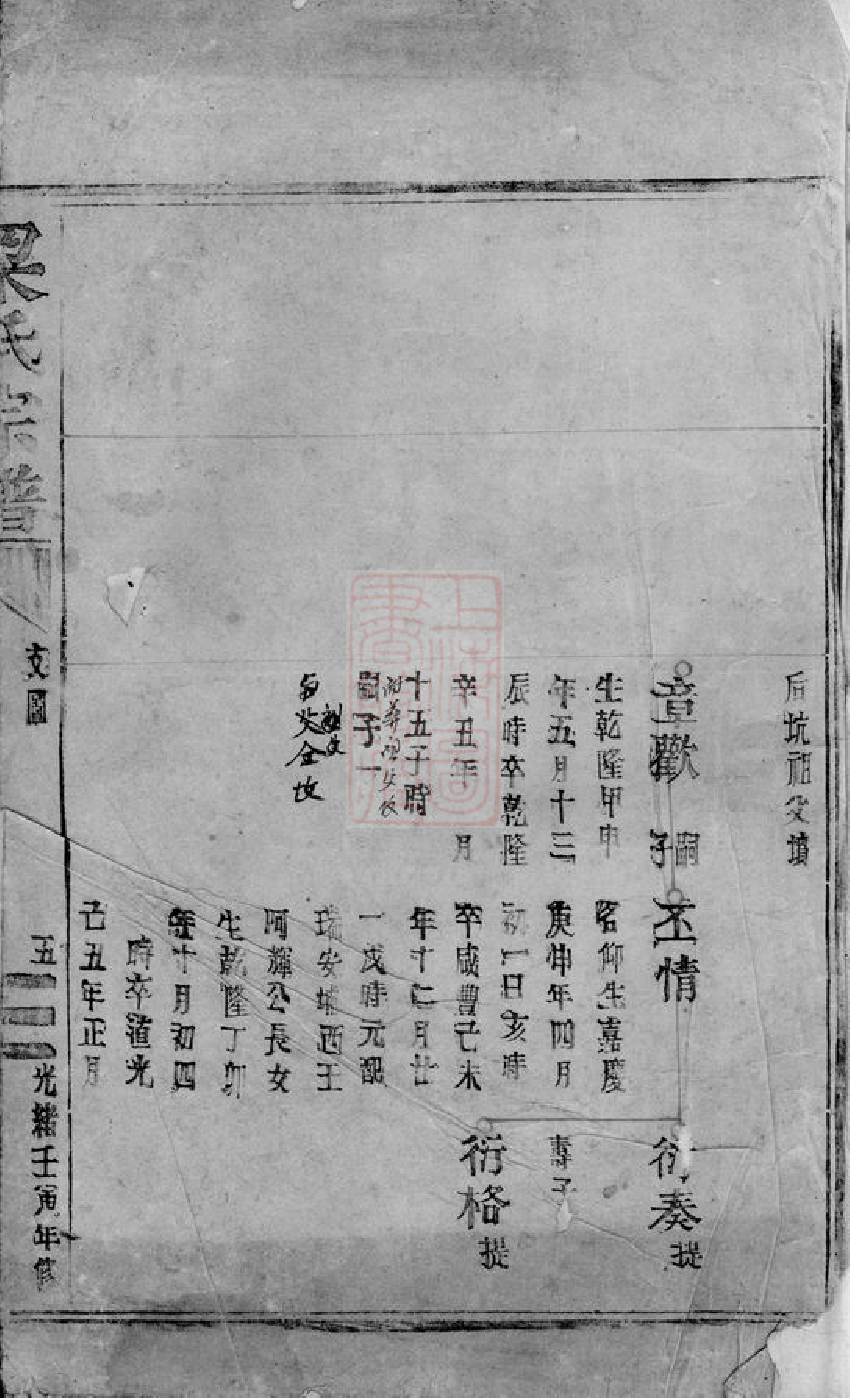 后坑祖父墳
章歡 嗣子
生乾隆甲申
年五月十三
辰時卒乾隆
辛丑年 月
十五子時
嗣子一
丕情
名仰生嘉慶
庚伸年四月
初一日亥時
卒咸豐己未
年十二月廿
一戌時元配
瑞安埔西王
阿輝公長女
生乾隆丁卯
年十月初四
時卒道光
己丑年正月
衍奏 提
壽子
衍格 提
梁氏宗譜
支圖
五
光緒壬寅年修
上海圖書館